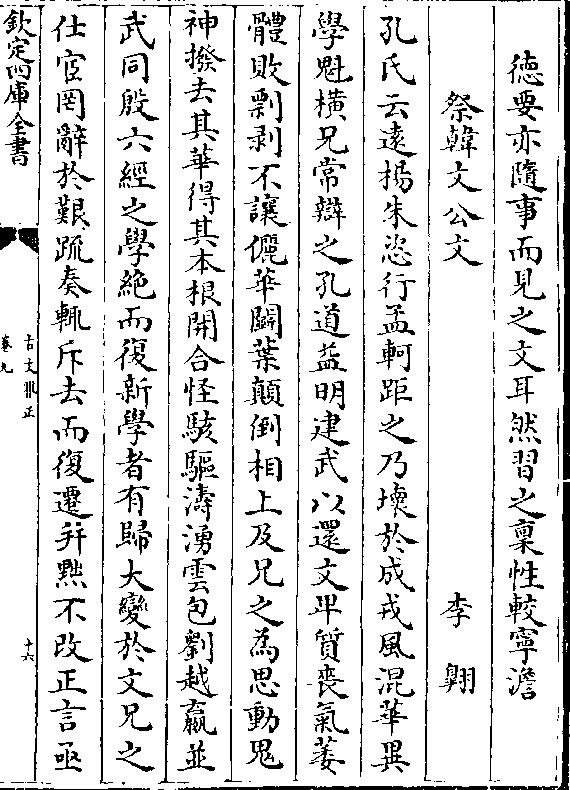 德要亦隨事而見之文耳然習之稟性較寧澹
祭韓文公文　李翺
孔氏云遠楊朱恣行孟軻距之乃壞於成戎風混華異
學魁橫兄常辯之孔道益明建武以還文卑質喪氣萎
體敗剽剥不讓儷華鬭葉顛倒相上及兄之為思動鬼
神撥去其華得其本根開合怪駭驅濤湧雲包劉越嬴並
武同殷六經之學絶而復新學者有歸大變於文兄之
仕宦罔辭於艱疏奏輒斥去而復遷升黜不改正言亟
欽定四庫全書
古文雅正
卷九
十六